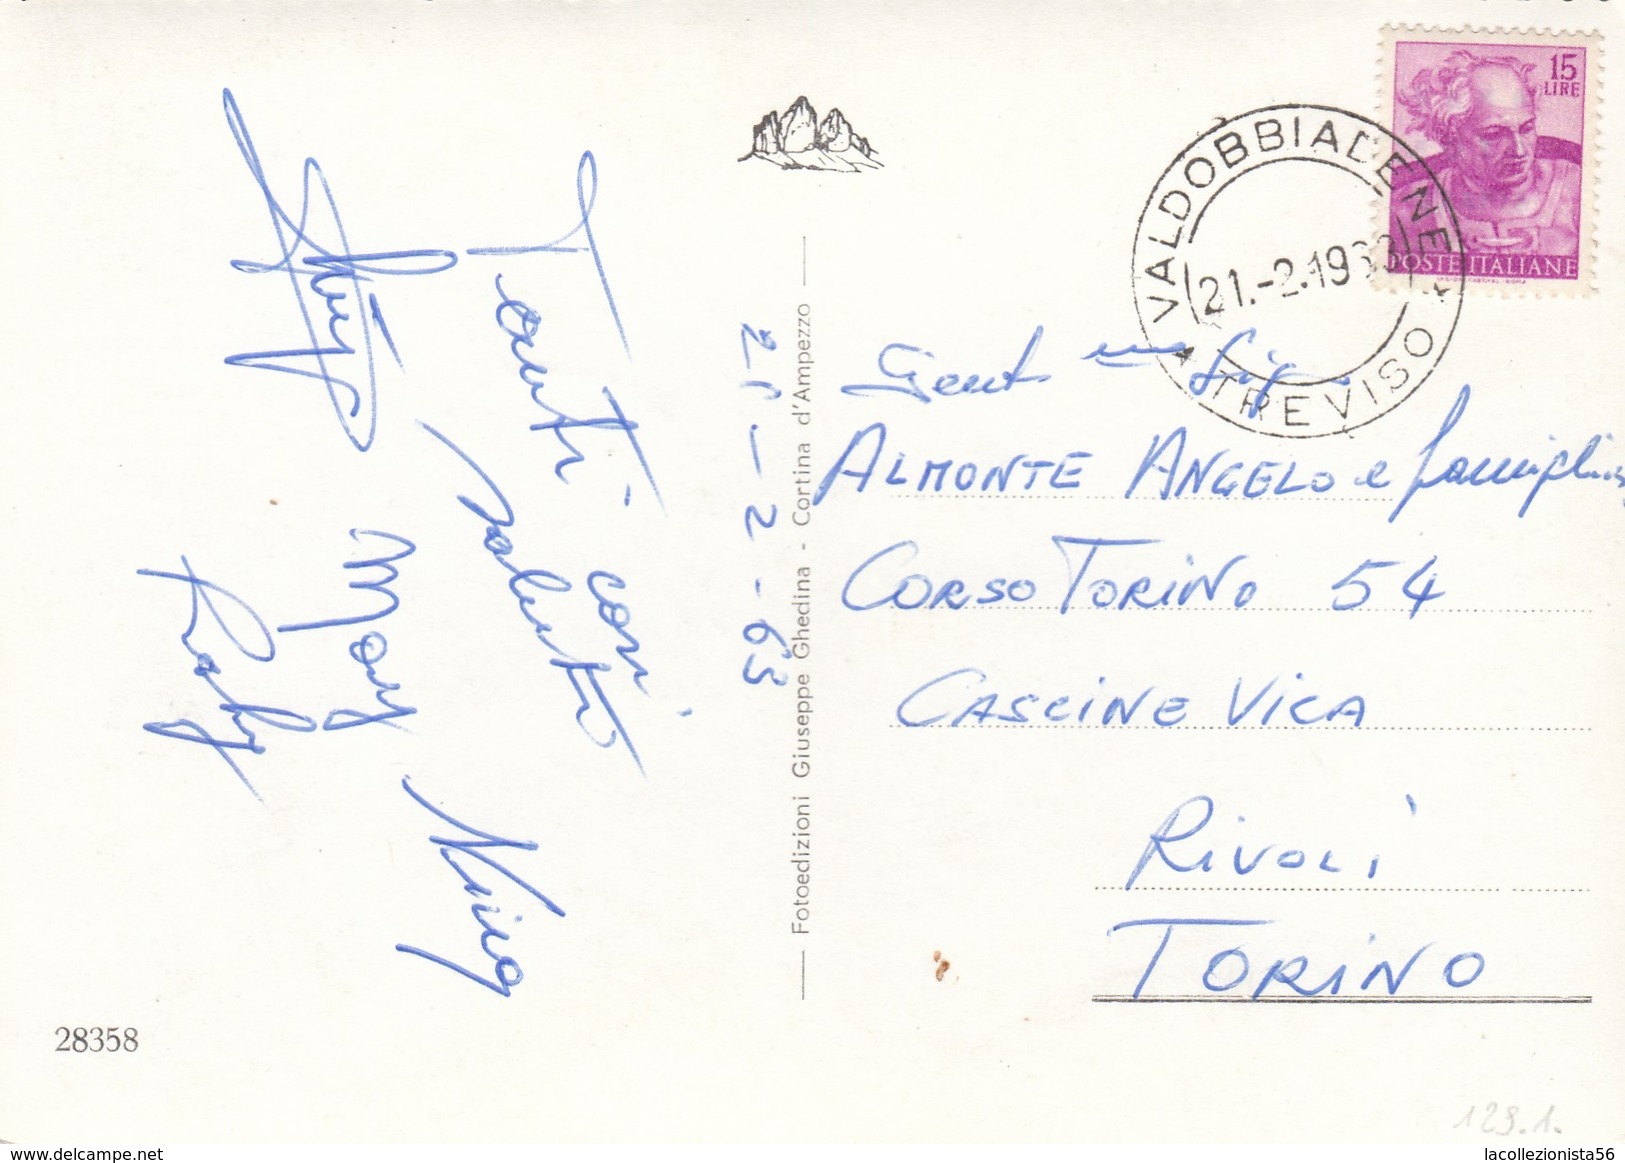 Tanti cari
saluti
Mary
Nino
21-2-63
Fotoedizioni Giuseppe Ghedina - Cortina d'Ampezzo
28358
15
LIRE
POSTE ITALIANE
VALDOBBIADENE
21.-2.1963
TREVISO
Gent Sig.
ALMONTE ANGELO e famiglia
CORSO TORINO 54
CASCINE VICA
RIVOLI
TORINO
129.1.
delcampe.net
lacollezionista56